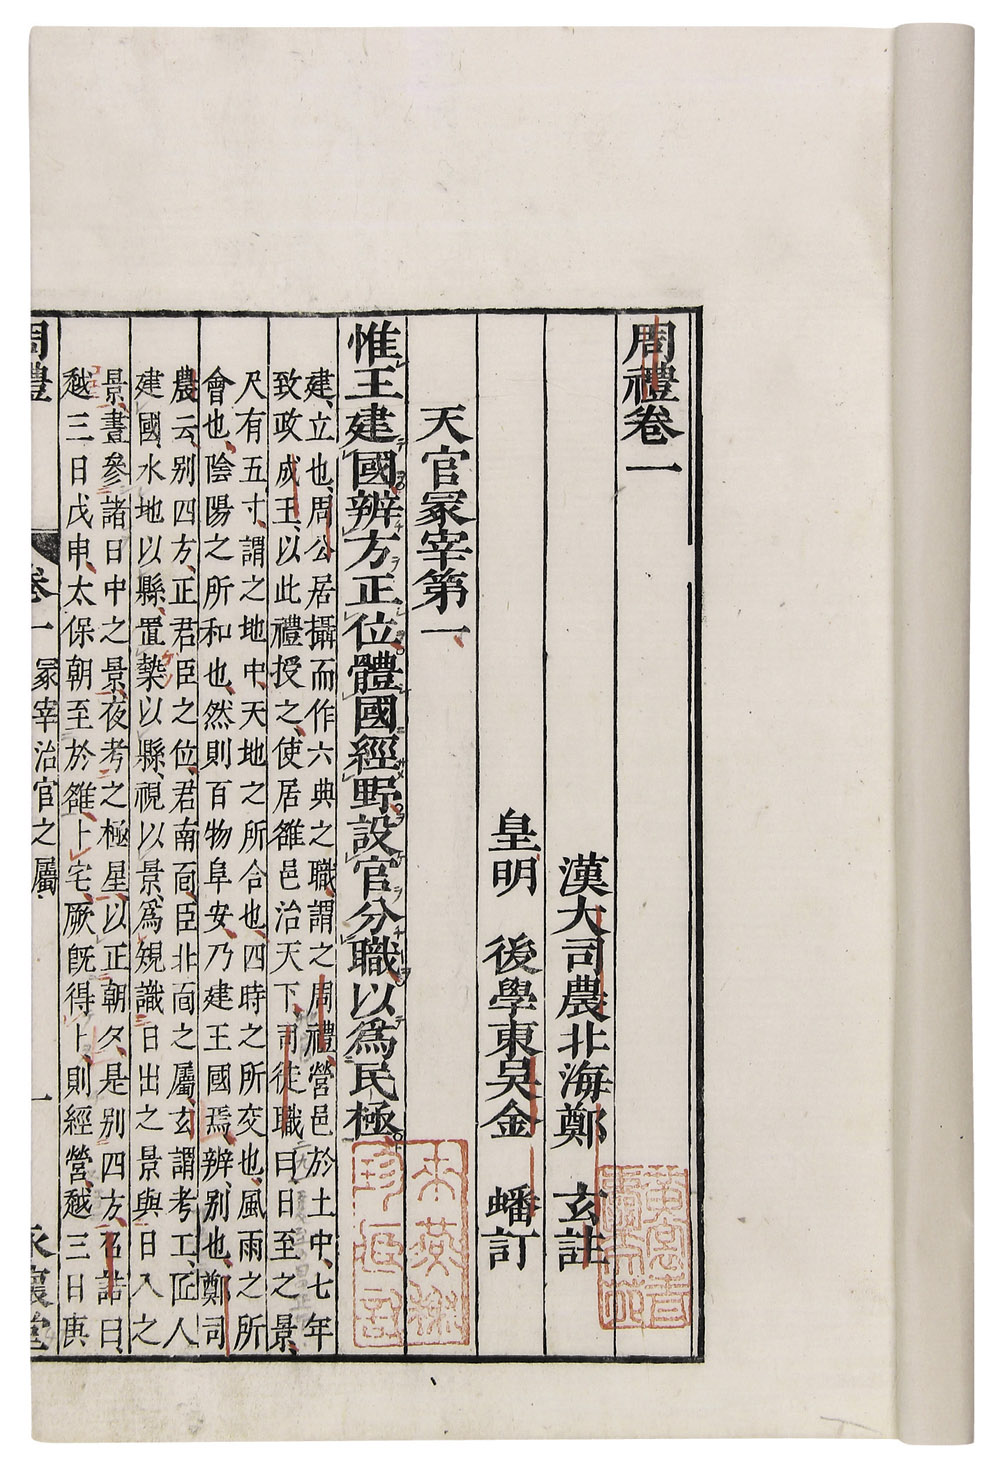 周禮卷一
漢大司農北海鄭　玄註
皇明　後學東吳金　蟠訂
天官冢宰第一
惟王建國辨方正位體國經野設官分職以爲民極
建、立也、周公居攝而作六典之職、謂之周禮、營邑於土中、七年
致政成王、以此禮授之、使居雒邑治天下、司徒職曰、日至之景、
尺有五寸、謂之地中、天地之所合也、四時之所交也、風雨之所
會也、陰陽之所和也、然則百物阜安、乃建王國焉、辨、别也、鄭司
農云、别四方、正君臣之位、君南面、臣北面之屬、玄謂考工、匠人
建國、水地以縣、置槷以縣、視以景、爲規識日出之景與日入之
景、晝參諸日中之景、夜考之極星、以正朝夕、是别四方、召誥曰、
越三日戊申、太保朝至於雒、卜宅、厥既得卜、則經營、越三日庚
周禮　卷一　冢宰治官之屬、　一　永懷堂